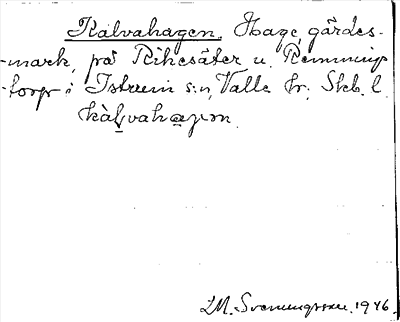 Kalvahagen. Hage, gärdes-
-mark, på Rikesäter u. Remmings-
-torp i Istrum s:n, Valle hr; Skb. l.
kàlvahagen.
LM. Svenungsson. 1946.